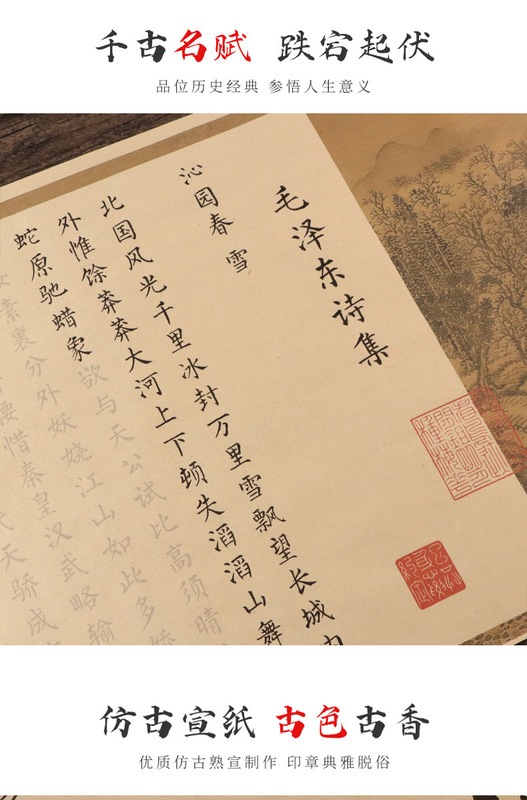 千古名赋 跌宕起伏
品位历史经典 参悟人生意义
毛泽东诗集
沁园春 雪
北国风光千里冰封万里雪飘望长城内
外惟馀莽莽大河上下顿失滔滔山舞
蛇原驰蜡象欲与天公试比高须晴
素裹分外妖娆江山如此多娇
腰惜秦皇汉武略输
天骄成
仿古宣纸 古色古香
优质仿古熟宣制作 印章典雅脱俗